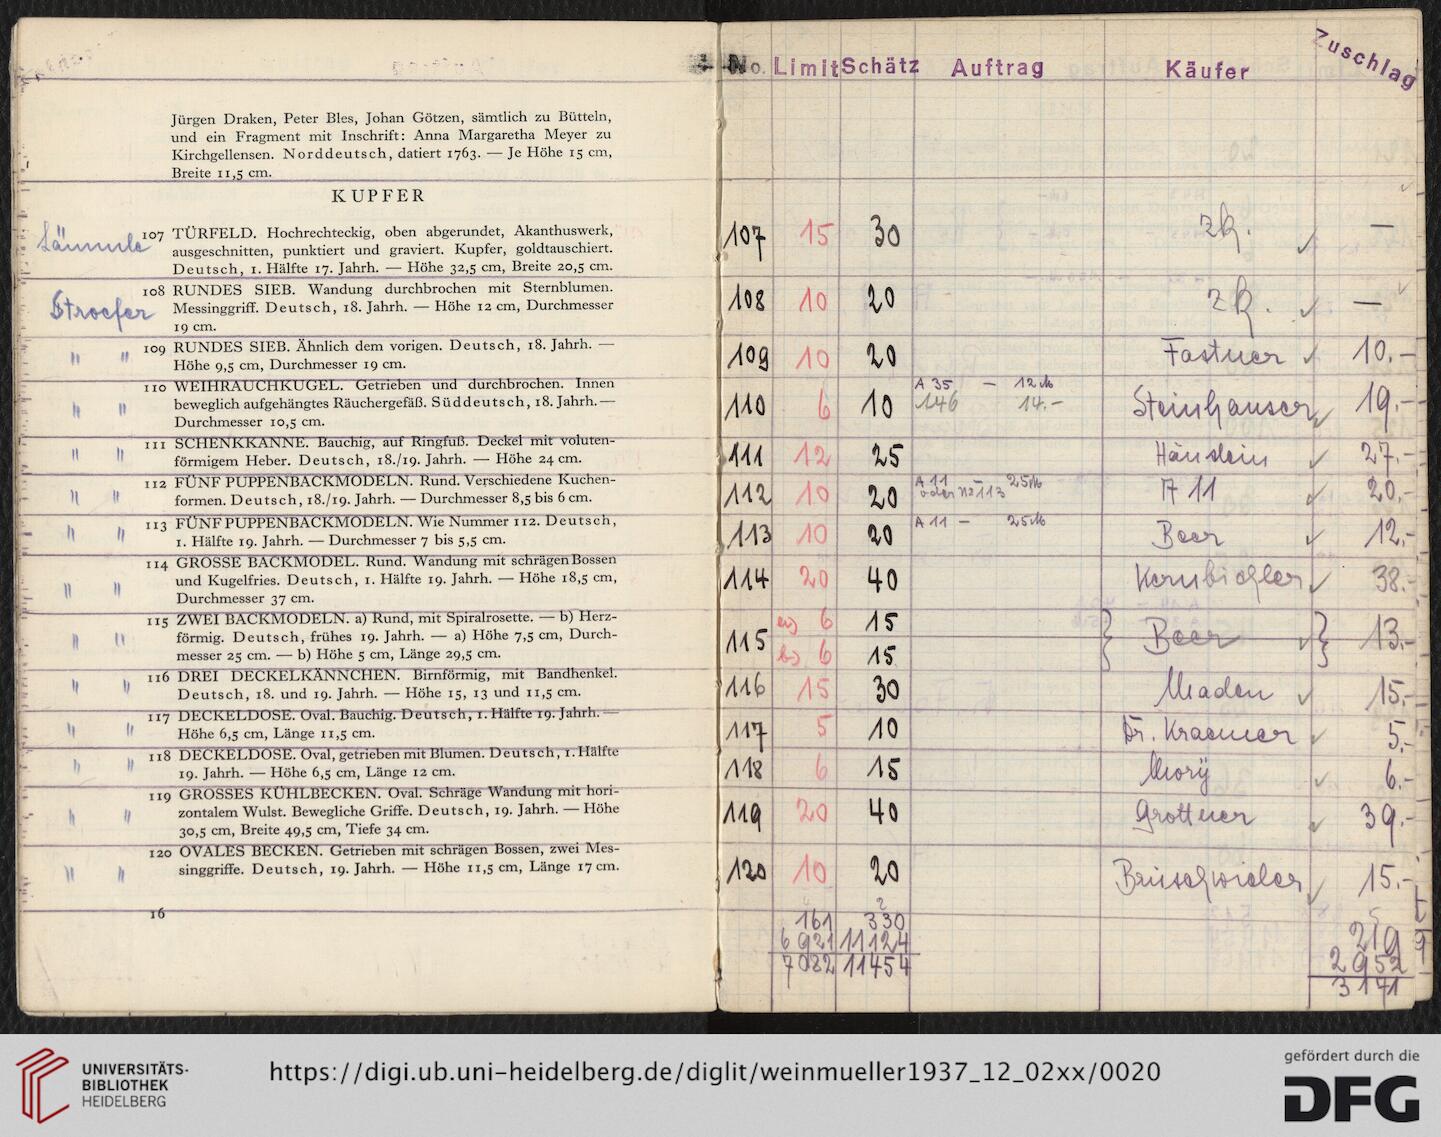 Jürgen Draken, Peter Bles, Johan Götzen, sämtlich zu Bütteln,
und ein Fragment mit Inschrift: Anna Margaretha Meyer zu
Kirchgellensen. Norddeutsch, datiert 1763. — Je Höhe 15 cm,
Breite 11,5 cm.
KUPFER
107 TÜRFELD. Hochrechteckig, oben abgerundet, Akanthuswerk,
ausgeschnitten, punktiert und graviert. Kupfer, goldtauschiert.
Deutsch, 1. Hälfte 17. Jahrh. — Höhe 32,5 cm, Breite 20,5 cm.
Stroefer
108 RUNDES SIEB. Wandung durchbrochen mit Sternblumen.
Messinggriff. Deutsch, 18. Jahrh. — Höhe 12 cm, Durchmesser
19 cm.
" " 109 RUNDES SIEB. Ähnlich dem vorigen. Deutsch, 18. Jahrh. —
Höhe 9,5 cm, Durchmesser 19 cm.
110 WEIHRAUCHKUGEL. Getrieben und durchbrochen. Innen
" " beweglich aufgehängtes Räuchergefäß. Süddeutsch, 18. Jahrh. —
Durchmesser 10,5 cm.
" " 111 SCHENKKANNE. Bauchig, auf Ringfuß. Deckel mit voluten-
förmigem Heber. Deutsch, 18./19. Jahrh. — Höhe 24 cm.
" " 112 FÜNF PUPPENBACKMODELN. Rund. Verschiedene Kuchen-
formen. Deutsch, 18./19. Jahrh. — Durchmesser 8,5 bis 6 cm.
" " 113 FÜNF PUPPENBACKMODELN. Wie Nummer 112. Deutsch,
1. Hälfte 19. Jahrh. — Durchmesser 7 bis 5,5 cm.
114 GROSSE BACKMODEL. Rund. Wandung mit schrägen Bossen
" " und Kugelfries. Deutsch, 1. Hälfte 19. Jahrh. — Höhe 18,5 cm,
Durchmesser 37 cm.
115 ZWEI BACKMODELN. a) Rund, mit Spiralrosette. — b) Herz-
" " förmig. Deutsch, frühes 19. Jahrh. — a) Höhe 7,5 cm, Durch-
messer 25 cm. — b) Höhe 5 cm, Länge 29,5 cm.
" " 116 DREI DECKELKÄNNCHEN. Birnförmig, mit Bandhenkel.
Deutsch, 18. und 19. Jahrh. — Höhe 15, 13 und 11,5 cm.
" " 117 DECKELDOSE. Oval. Bauchig. Deutsch, 1. Hälfte 19. Jahrh. —
Höhe 6,5 cm, Länge 11,5 cm.
" " 118 DECKELDOSE. Oval, getrieben mit Blumen. Deutsch, 1. Hälfte
19. Jahrh. — Höhe 6,5 cm, Länge 12 cm.
119 GROSSES KÜHLBECKEN. Oval. Schräge Wandung mit hori-
" " zontalem Wulst. Bewegliche Griffe. Deutsch, 19. Jahrh. — Höhe
30,5 cm, Breite 49,5 cm, Tiefe 34 cm.
120 OVALES BECKEN. Getrieben mit schrägen Bossen, zwei Mes-
" " singgriffe. Deutsch, 19. Jahrh. — Höhe 11,5 cm, Länge 17 cm.
16
No. Limit Schätz Auftrag Käufer Zuschlag
107 15 30 zk. —
108 10 20 zk. —
109 10 20 Fastner 10.-
A 35 — 12 M
110 6 10 146 14.- Steinhauser 19.-
111 12 25 27.-
A 11 25 M
112 10 20 oder No 113 A 11 20.-
113 10 20 A 11 — 25 M Beer 12.-
114 20 40 Kernbichler 38.-
a) 6 15
115 Beer 13.-
b) 6 15
116 15 30 Maden 15.-
117 5 10 Dr. Kraemer 5.-
118 6 15 Mory 6.-
119 20 40 Grottner 39.-
120 10 20 15.-
161 330 219
6921 11124 2952
7082 11454
UNIVERSITÄTS-
BIBLIOTHEK
HEIDELBERG
https://digi.ub.uni-heidelberg.de/diglit/weinmueller1937_12_02xx/0020
gefördert durch die
DFG